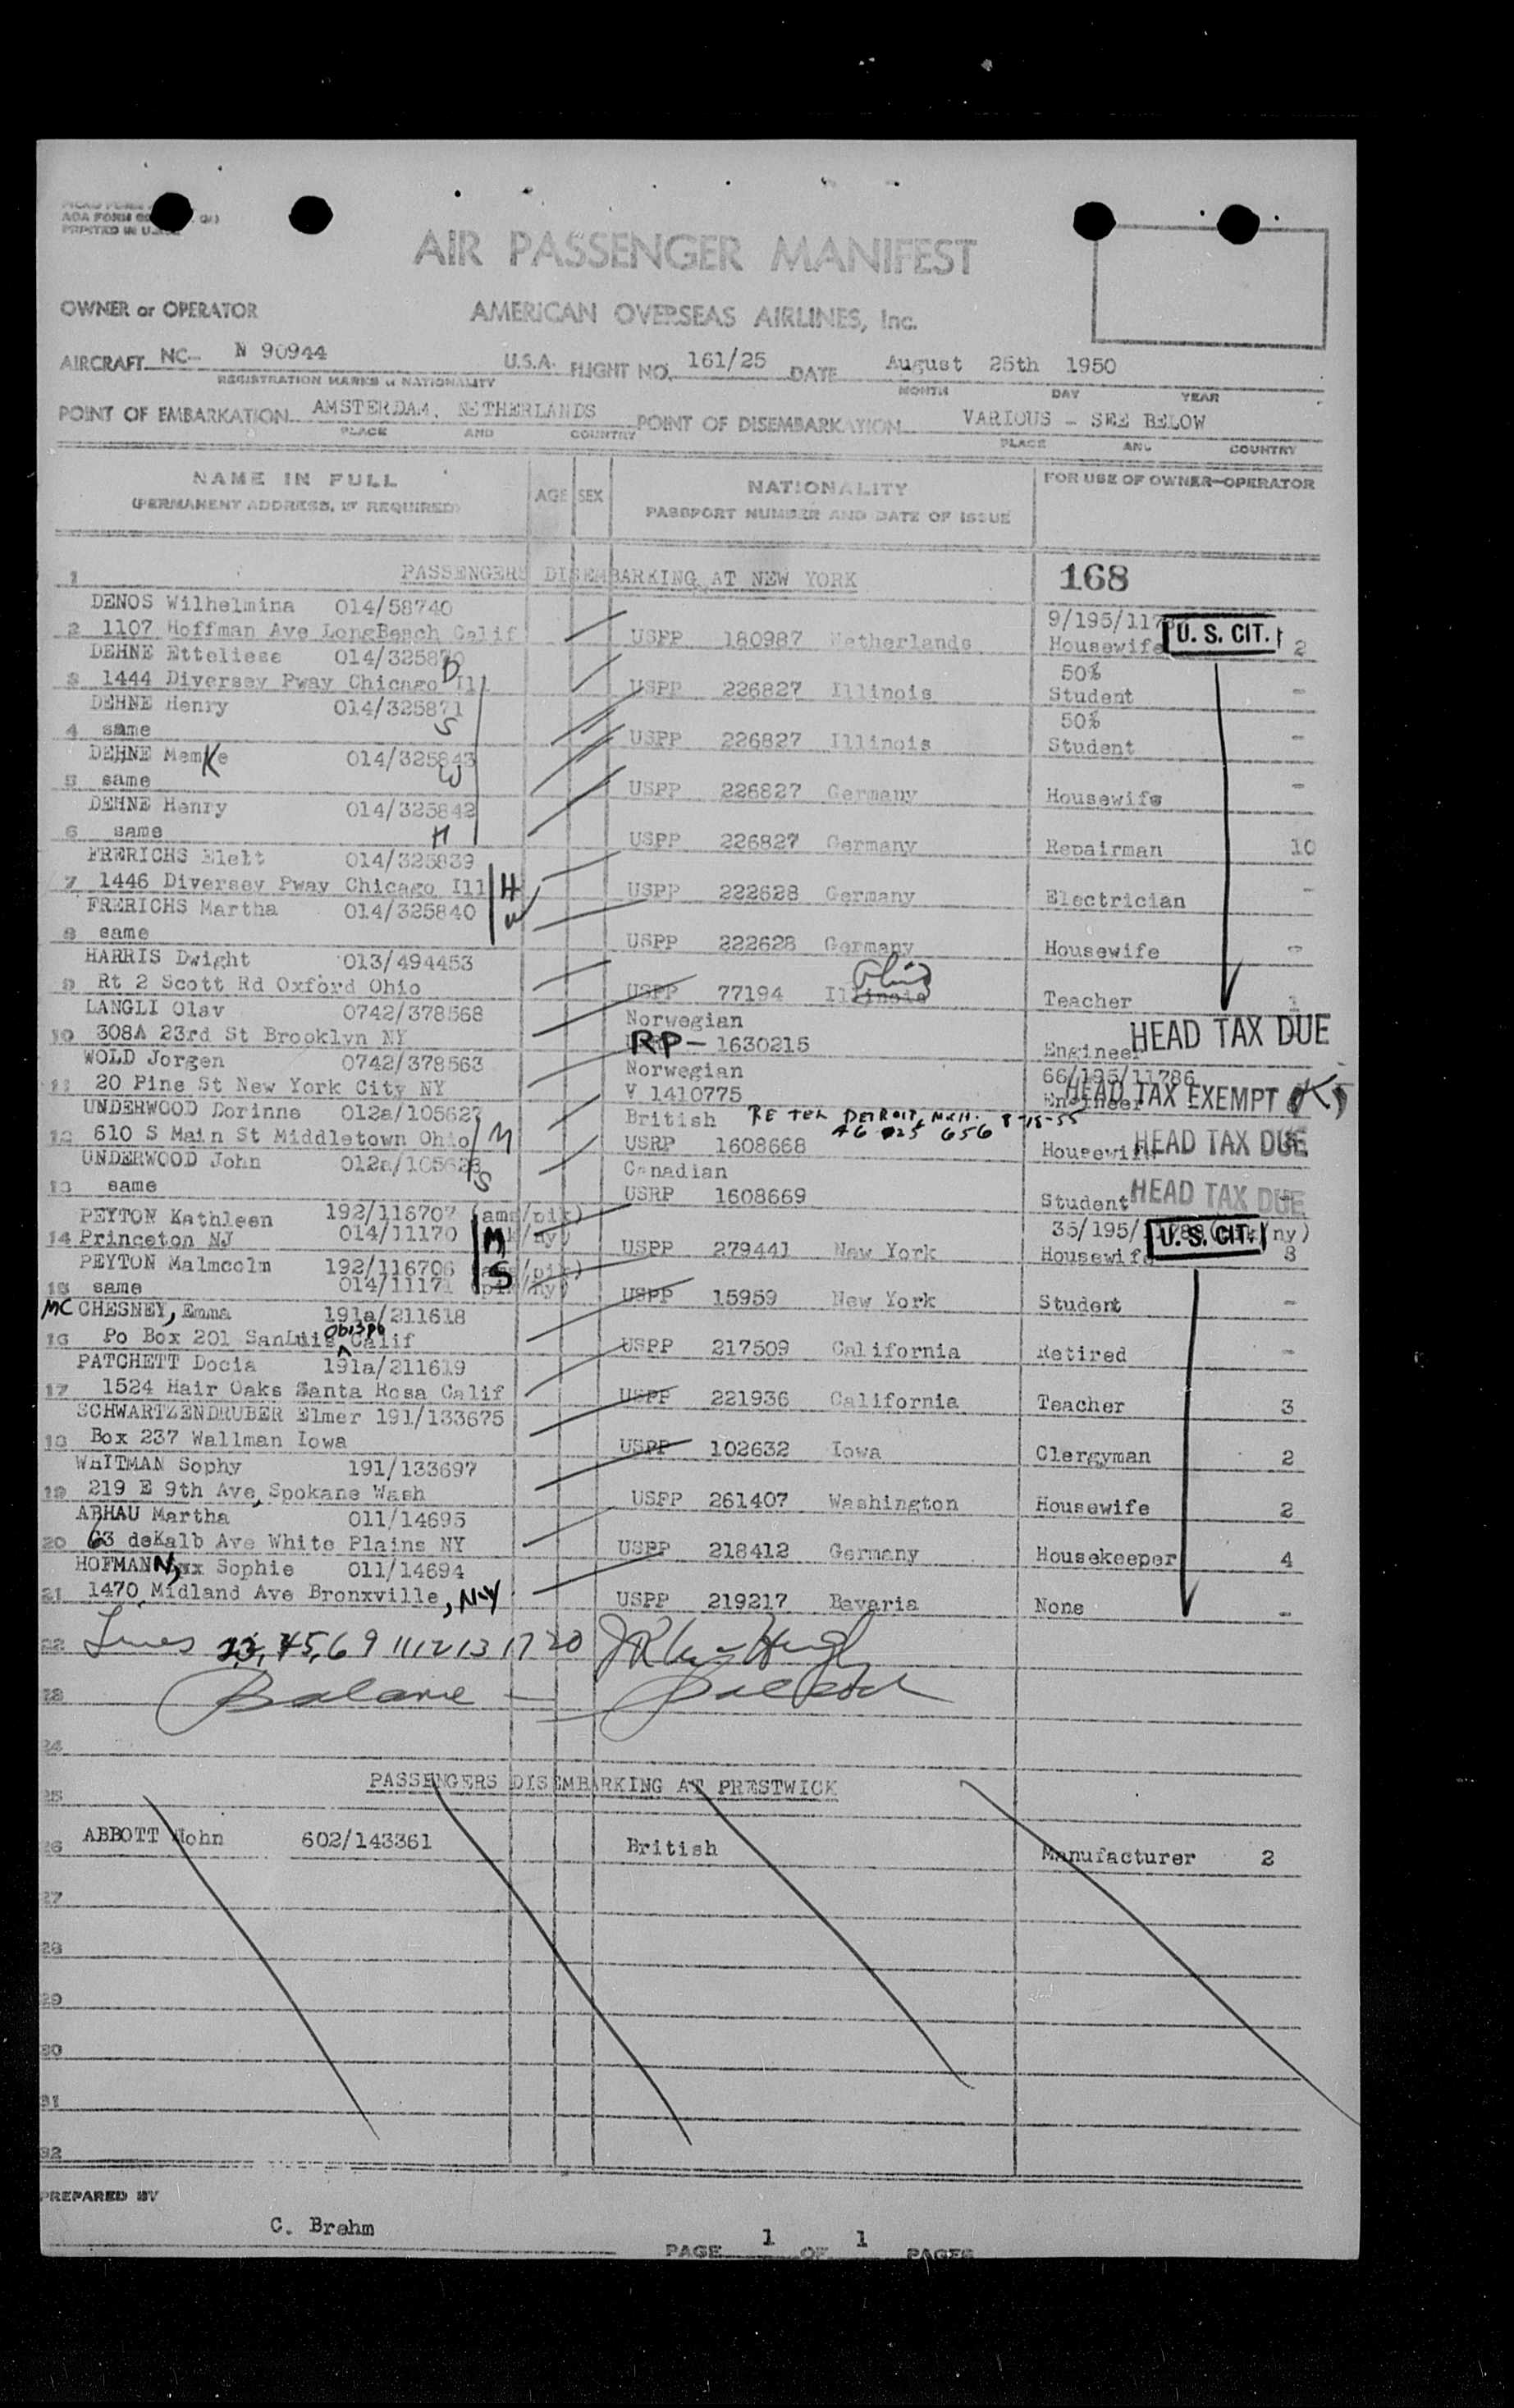 ACA FORM
PRINTED IN U.S.A.
AIR PASSENGER MANIFEST
OWNER or OPERATOR AMERICAN OVERSEAS AIRLINES, Inc.
AIRCRAFT NC- N 90944 U.S.A. FLIGHT NO. 161/25 DATE August 25th 1950
REGISTRATION MARKS & NATIONALITY MONTH DAY YEAR
POINT OF EMBARKATION AMSTERDAM, NETHERLANDS POINT OF DISEMBARKATION VARIOUS - SEE BELOW
PLACE AND COUNTRY PLACE AND COUNTRY
NAME IN FULL AGE SEX NATIONALITY FOR USE OF OWNER-OPERATOR
(PERMANENT ADDRESS, IF REQUIRED) PASSPORT NUMBER AND DATE OF ISSUE
1 PASSENGERS DISEMBARKING AT NEW YORK 168
DENOS Wilhelmina 014/58740 9/195/117
2 1107 Hoffman Ave LongBeach Calif USPP 180987 Netherlands Housewife U. S. CIT. 2
DEHNE Etteliese 014/325870 D 50%
3 1444 Diversey Pway Chicago Ill USPP 226827 Illinois Student -
DEHNE Henry 014/325871 S 50%
4 same USPP 226827 Illinois Student -
DEHNE Memke 014/325843 W
5 same USPP 226827 Germany Housewife -
DEHNE Henry 014/325842 H
6 same USPP 226827 Germany Repairman 10
FRERICHS Elelt 014/325839
7 1446 Diversey Pway Chicago Ill H USPP 222628 Germany Electrician -
FRERICHS Martha 014/325840 W
8 same USPP 222628 Germany Housewife -
HARRIS Dwight 013/494453 Ohio
9 Rt 2 Scott Rd Oxford Ohio USPP 77194 Illinois Teacher 1
LANGLI Olav 0742/378568 Norwegian
10 308A 23rd St Brooklyn NY RP - 1630215 Engineer HEAD TAX DUE
WOLD Jorgen 0742/378563 Norwegian 66/195/11786
11 20 Pine St New York City NY V 1410775 Engineer HEAD TAX EXEMPT
UNDERWOOD Dorinne 012a/105627 British RE TEL DETROIT, MICH. 8-18-55
12 610 S Main St Middletown Ohio M USRP 1608668 A6 025 656 Housewife HEAD TAX DUE
UNDERWOOD John 012a/105628 S Canadian
13 same USRP 1608669 Student HEAD TAX DUE
PEYTON Kathleen 192/116707 (ams/pik) 35/195/
14 Princeton NJ 014/11170 M USPP 279441 New York Housewife U. S. CIT. 8
PEYTON Malmcolm 192/116706
15 same 014/11171 S USPP 15959 New York Student -
MC CHESNEY, Emma 191a/211618
16 Po Box 201 SanLuis Obispo Calif USPP 217509 California Retired -
PATCHETT Docia 191a/211619
17 1524 Hair Oaks Santa Rosa Calif USPP 221936 California Teacher 3
SCHWARTZENDRUBER Elmer 191/133675
18 Box 237 Wallman Iowa USPP 102632 Iowa Clergyman 2
WHITMAN Sophy 191/133697
19 219 E 9th Ave, Spokane Wash USPP 261407 Washington Housewife 2
ABHAU Martha 011/14695
20 63 deKalb Ave White Plains NY USPP 218412 Germany Housekeeper 4
HOFMANN, xx Sophie 011/14694
21 1470 Midland Ave Bronxville, N.Y USPP 219217 Bavaria None -
22 Lines 6 9 11 12 13 17 20
23 Balance -
24
25 PASSENGERS DISEMBARKING AT PRESTWICK
26 ABBOTT John 602/143361 British Manufacturer 2
27
28
29
30
31
32
PREPARED BY
C. Brehm
PAGE 1 OF 1 PAGES